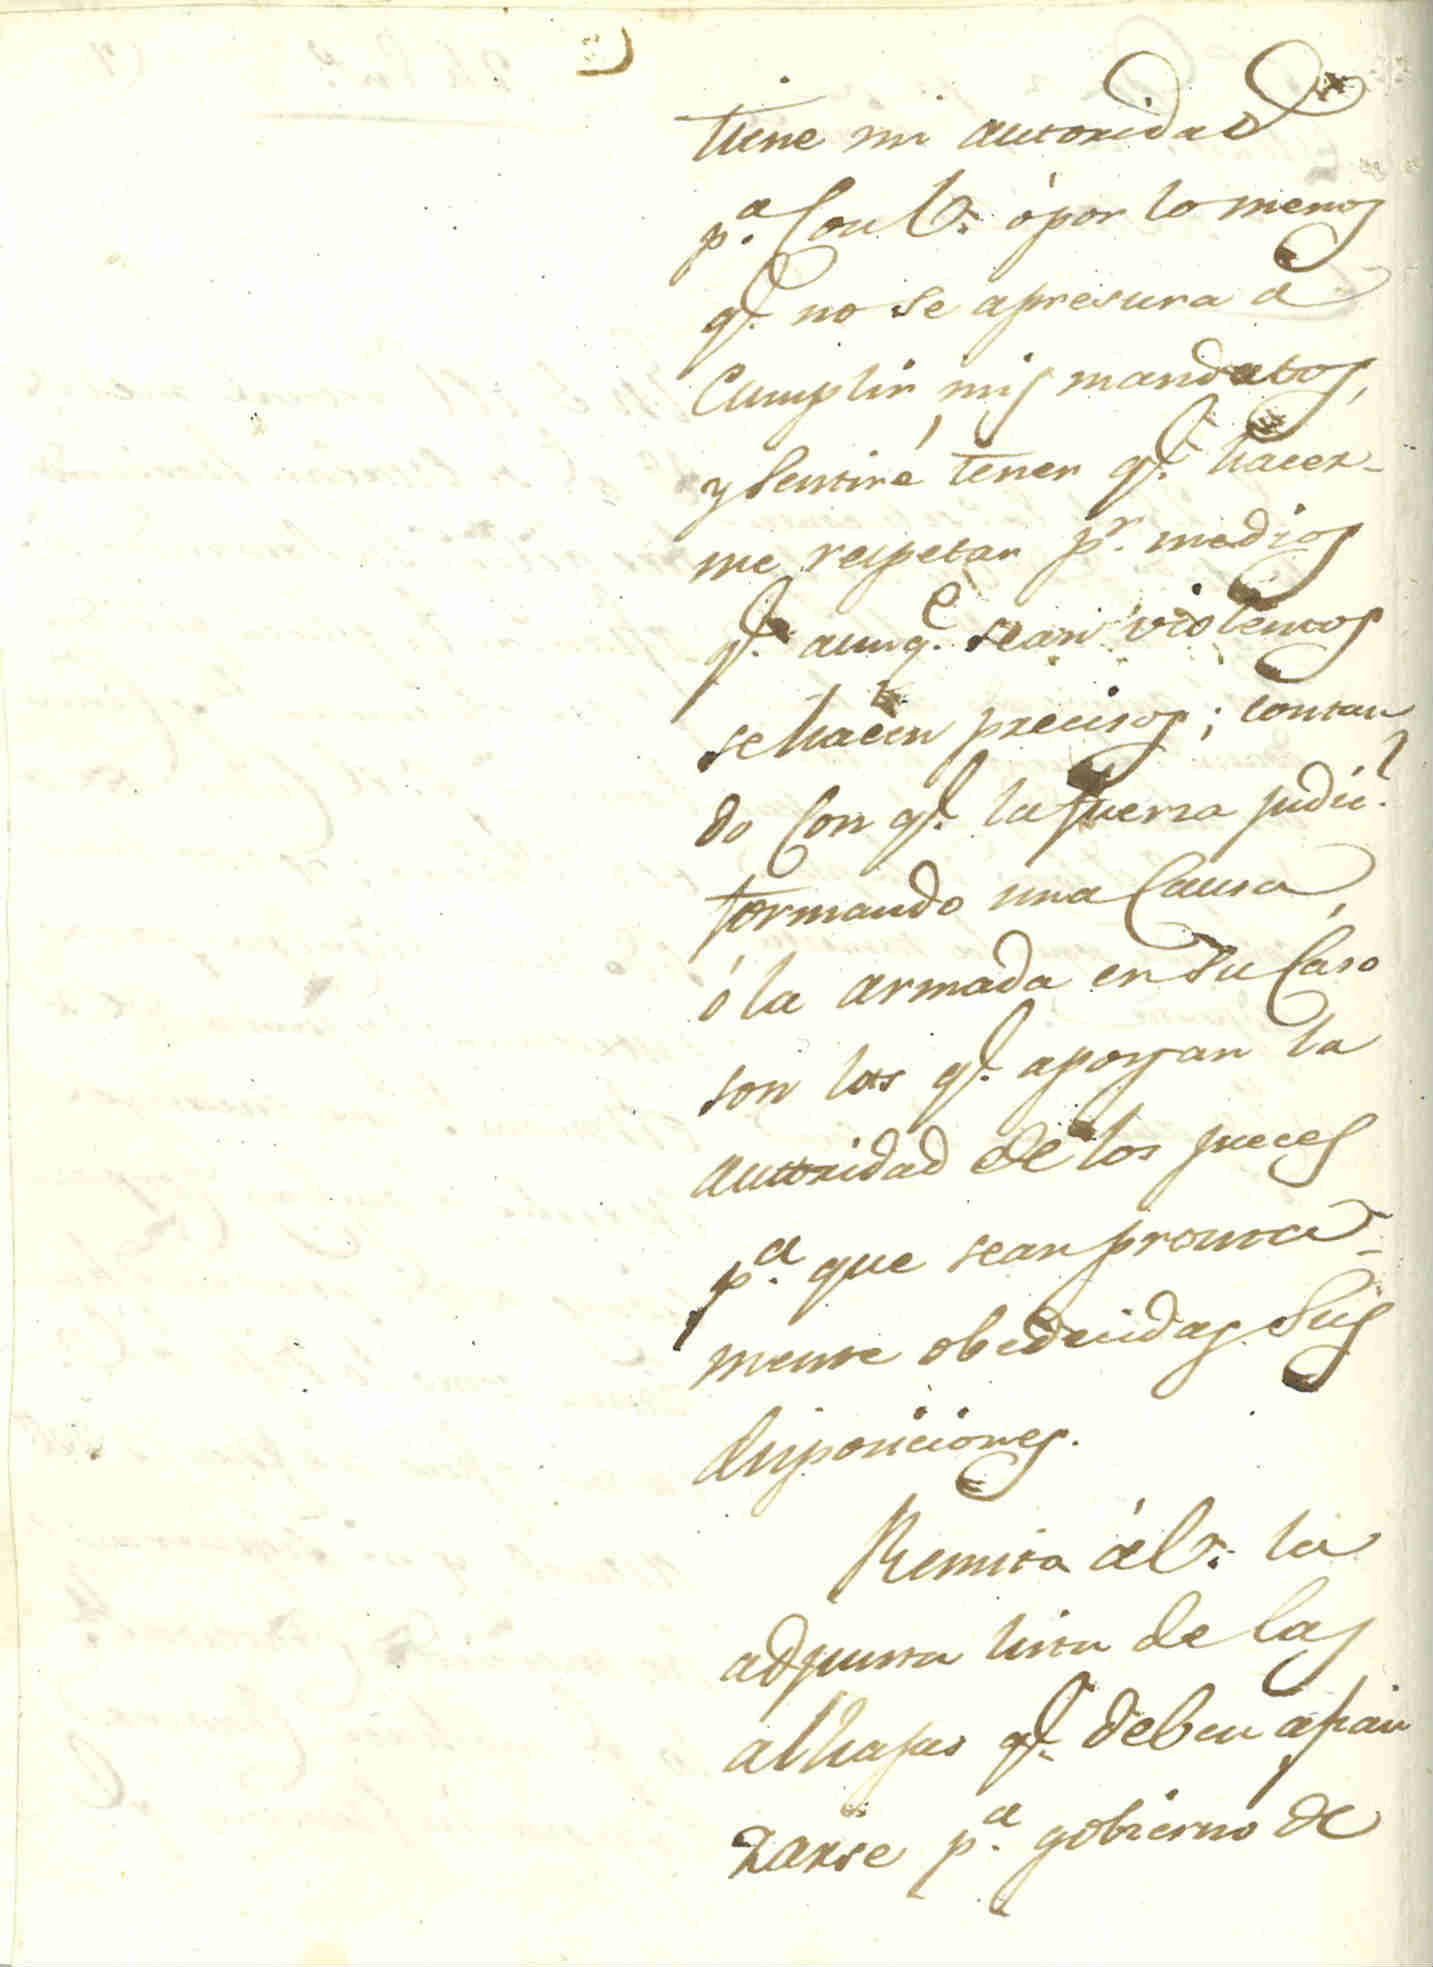 tiene mi autoridad
p.ª Con V. ó por lo menos
q.e no se apresura a
Cumplir mis mandatos,
y Sentiré tener q.e hacer-
me respetar p.r medios
q.e aunq.e sean violentos
se hacen precisos; contan
do Con q.e la fuerza judic.l
formando una Causa,
ó la armada en su Caso
son las q.e apoyan la
autoridad de los jueces
p.ª que sean pronta-
mente obedecidas sus
disposiciones.
Remito á V. la
adjunta lista de las
alhajas q.e deben afian
zarse p.ª gobierno de